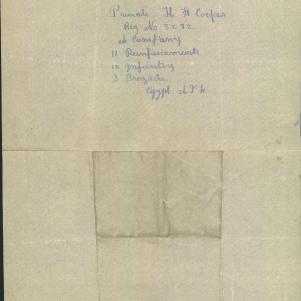 Private H H Cooper
Reg No 3272
Company
11 Reinforcements
10 Infantry
3 Brigade
Egypt A I F